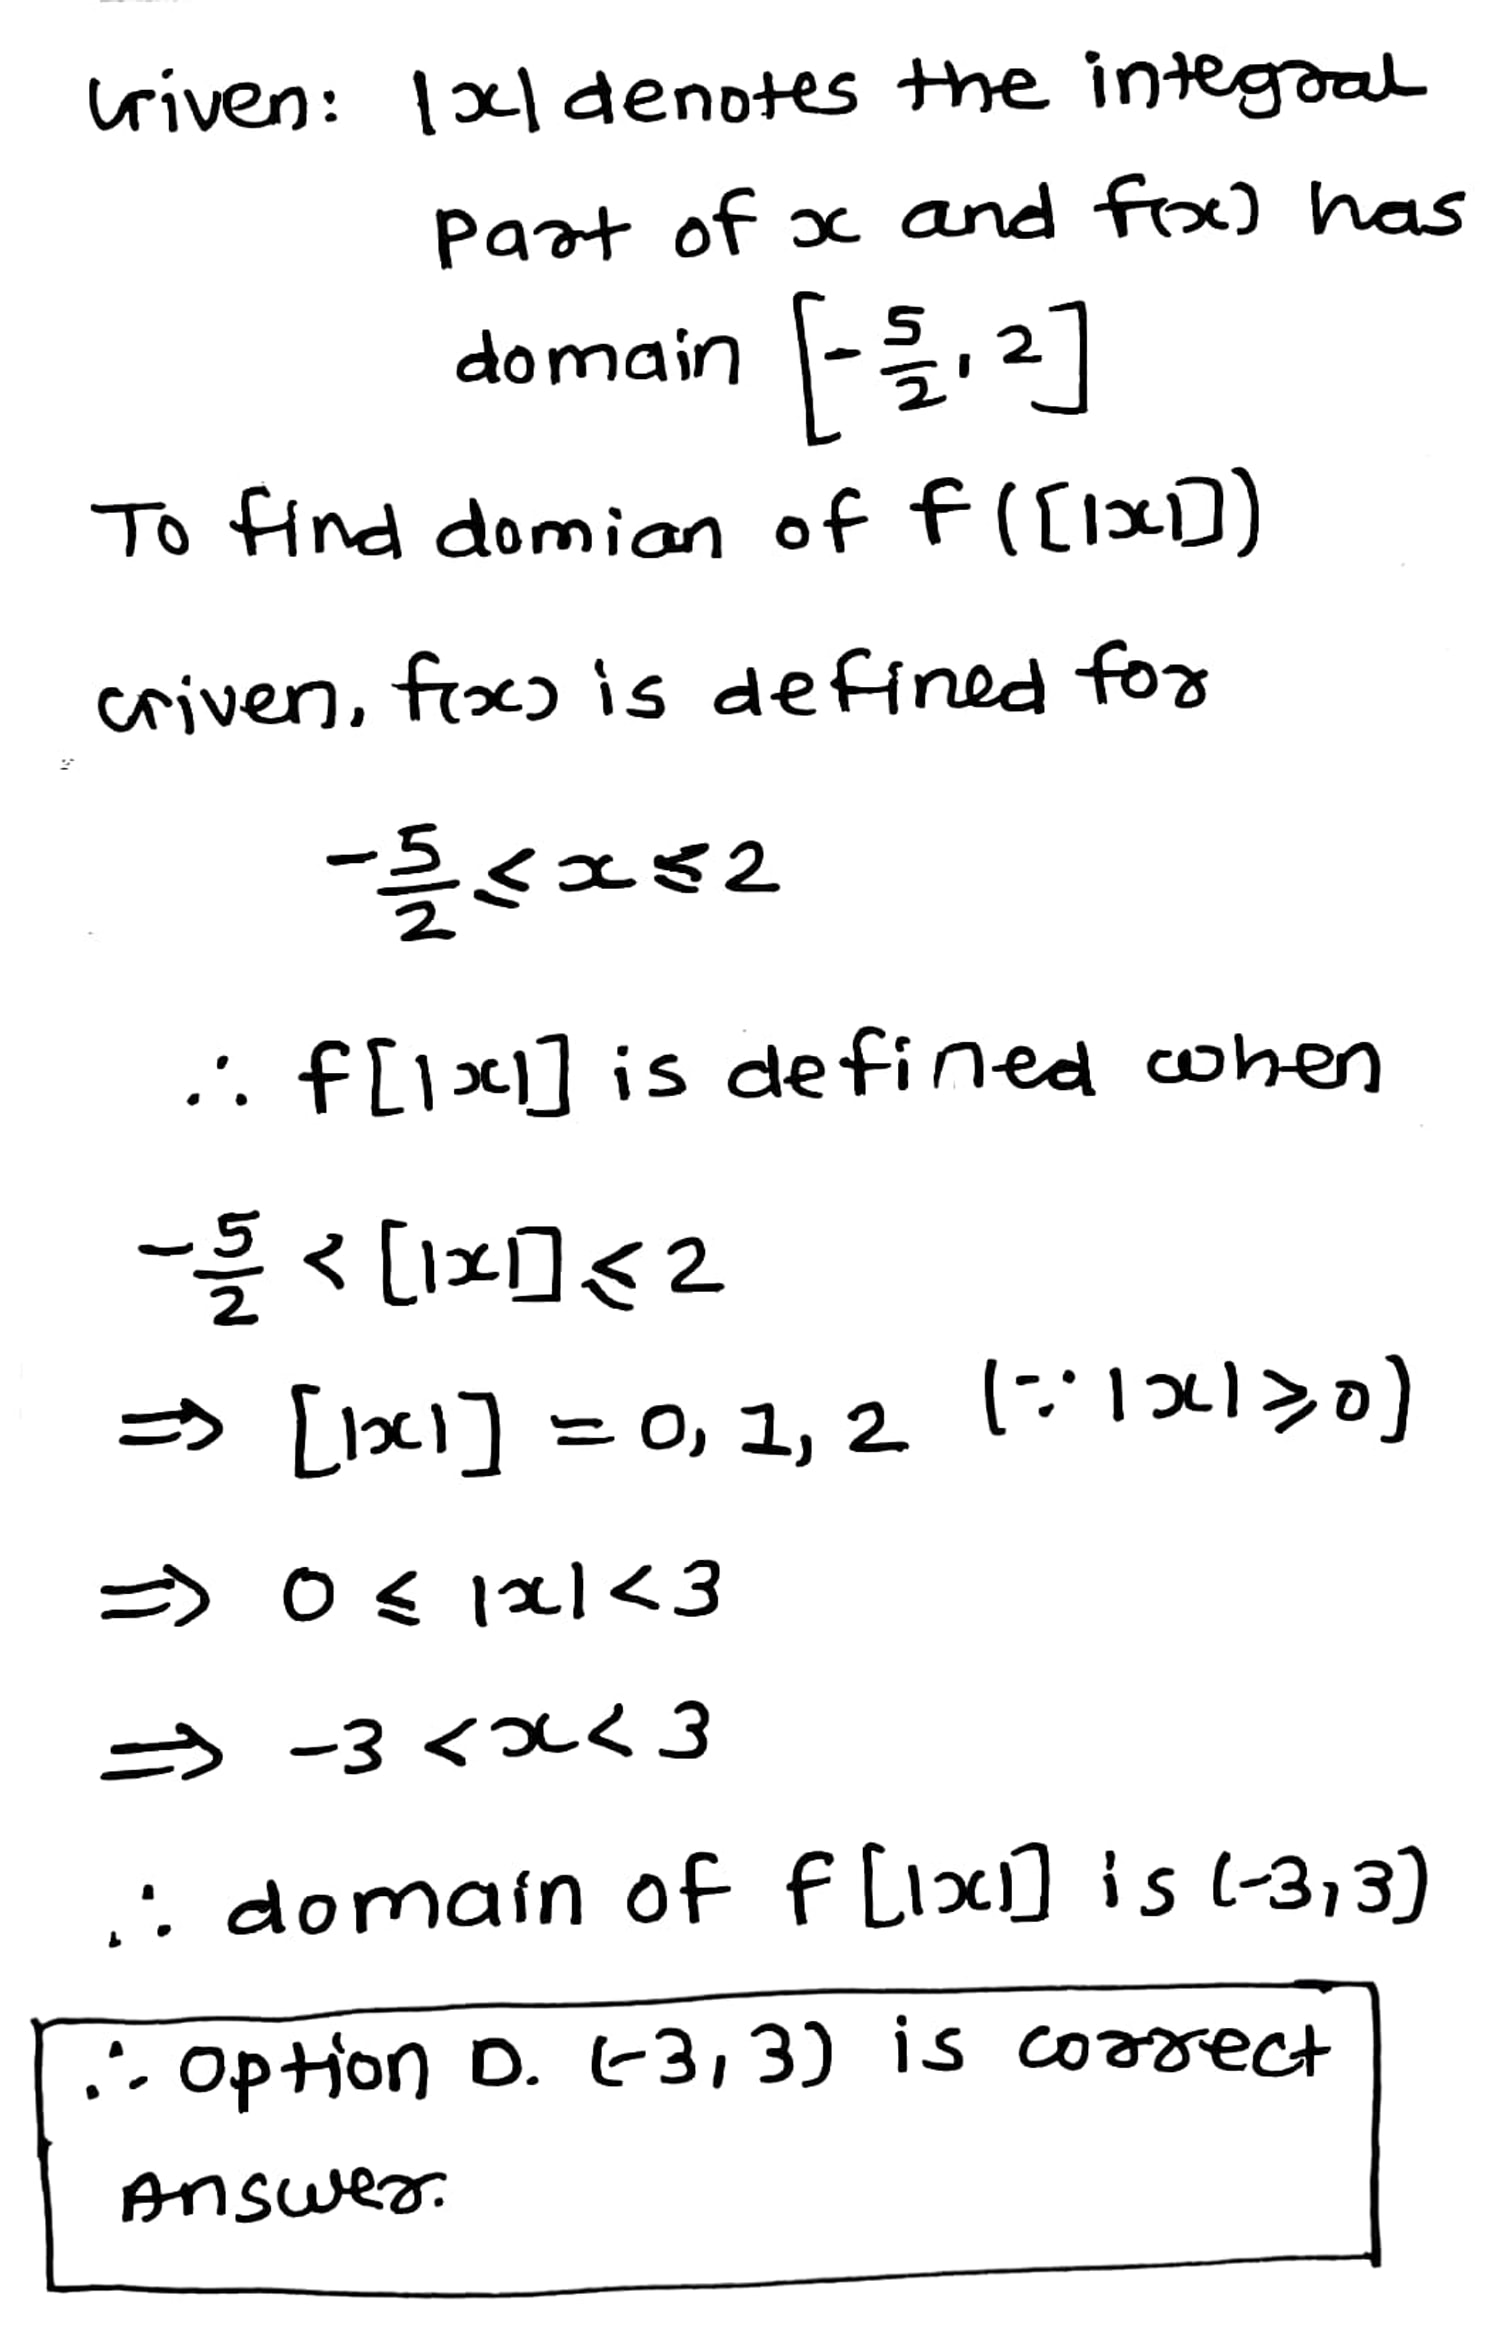 Given: |x| denotes the integral
part of x and f(x) has
domain [-5/2, 2]
To find domian of f([|x|])
Given, f(x) is defined for
-5/2 ≤ x ≤ 2
∴ f[|x|] is defined when
-5/2 < [|x|] ≤ 2
⇒ [|x|] = 0, 1, 2 (∵ |x| ≥ 0)
⇒ 0 ≤ |x| < 3
⇒ -3 < x < 3
∴ domain of f[|x|] is (-3,3)
∴ Option D. (-3,3) is correct
Answer.